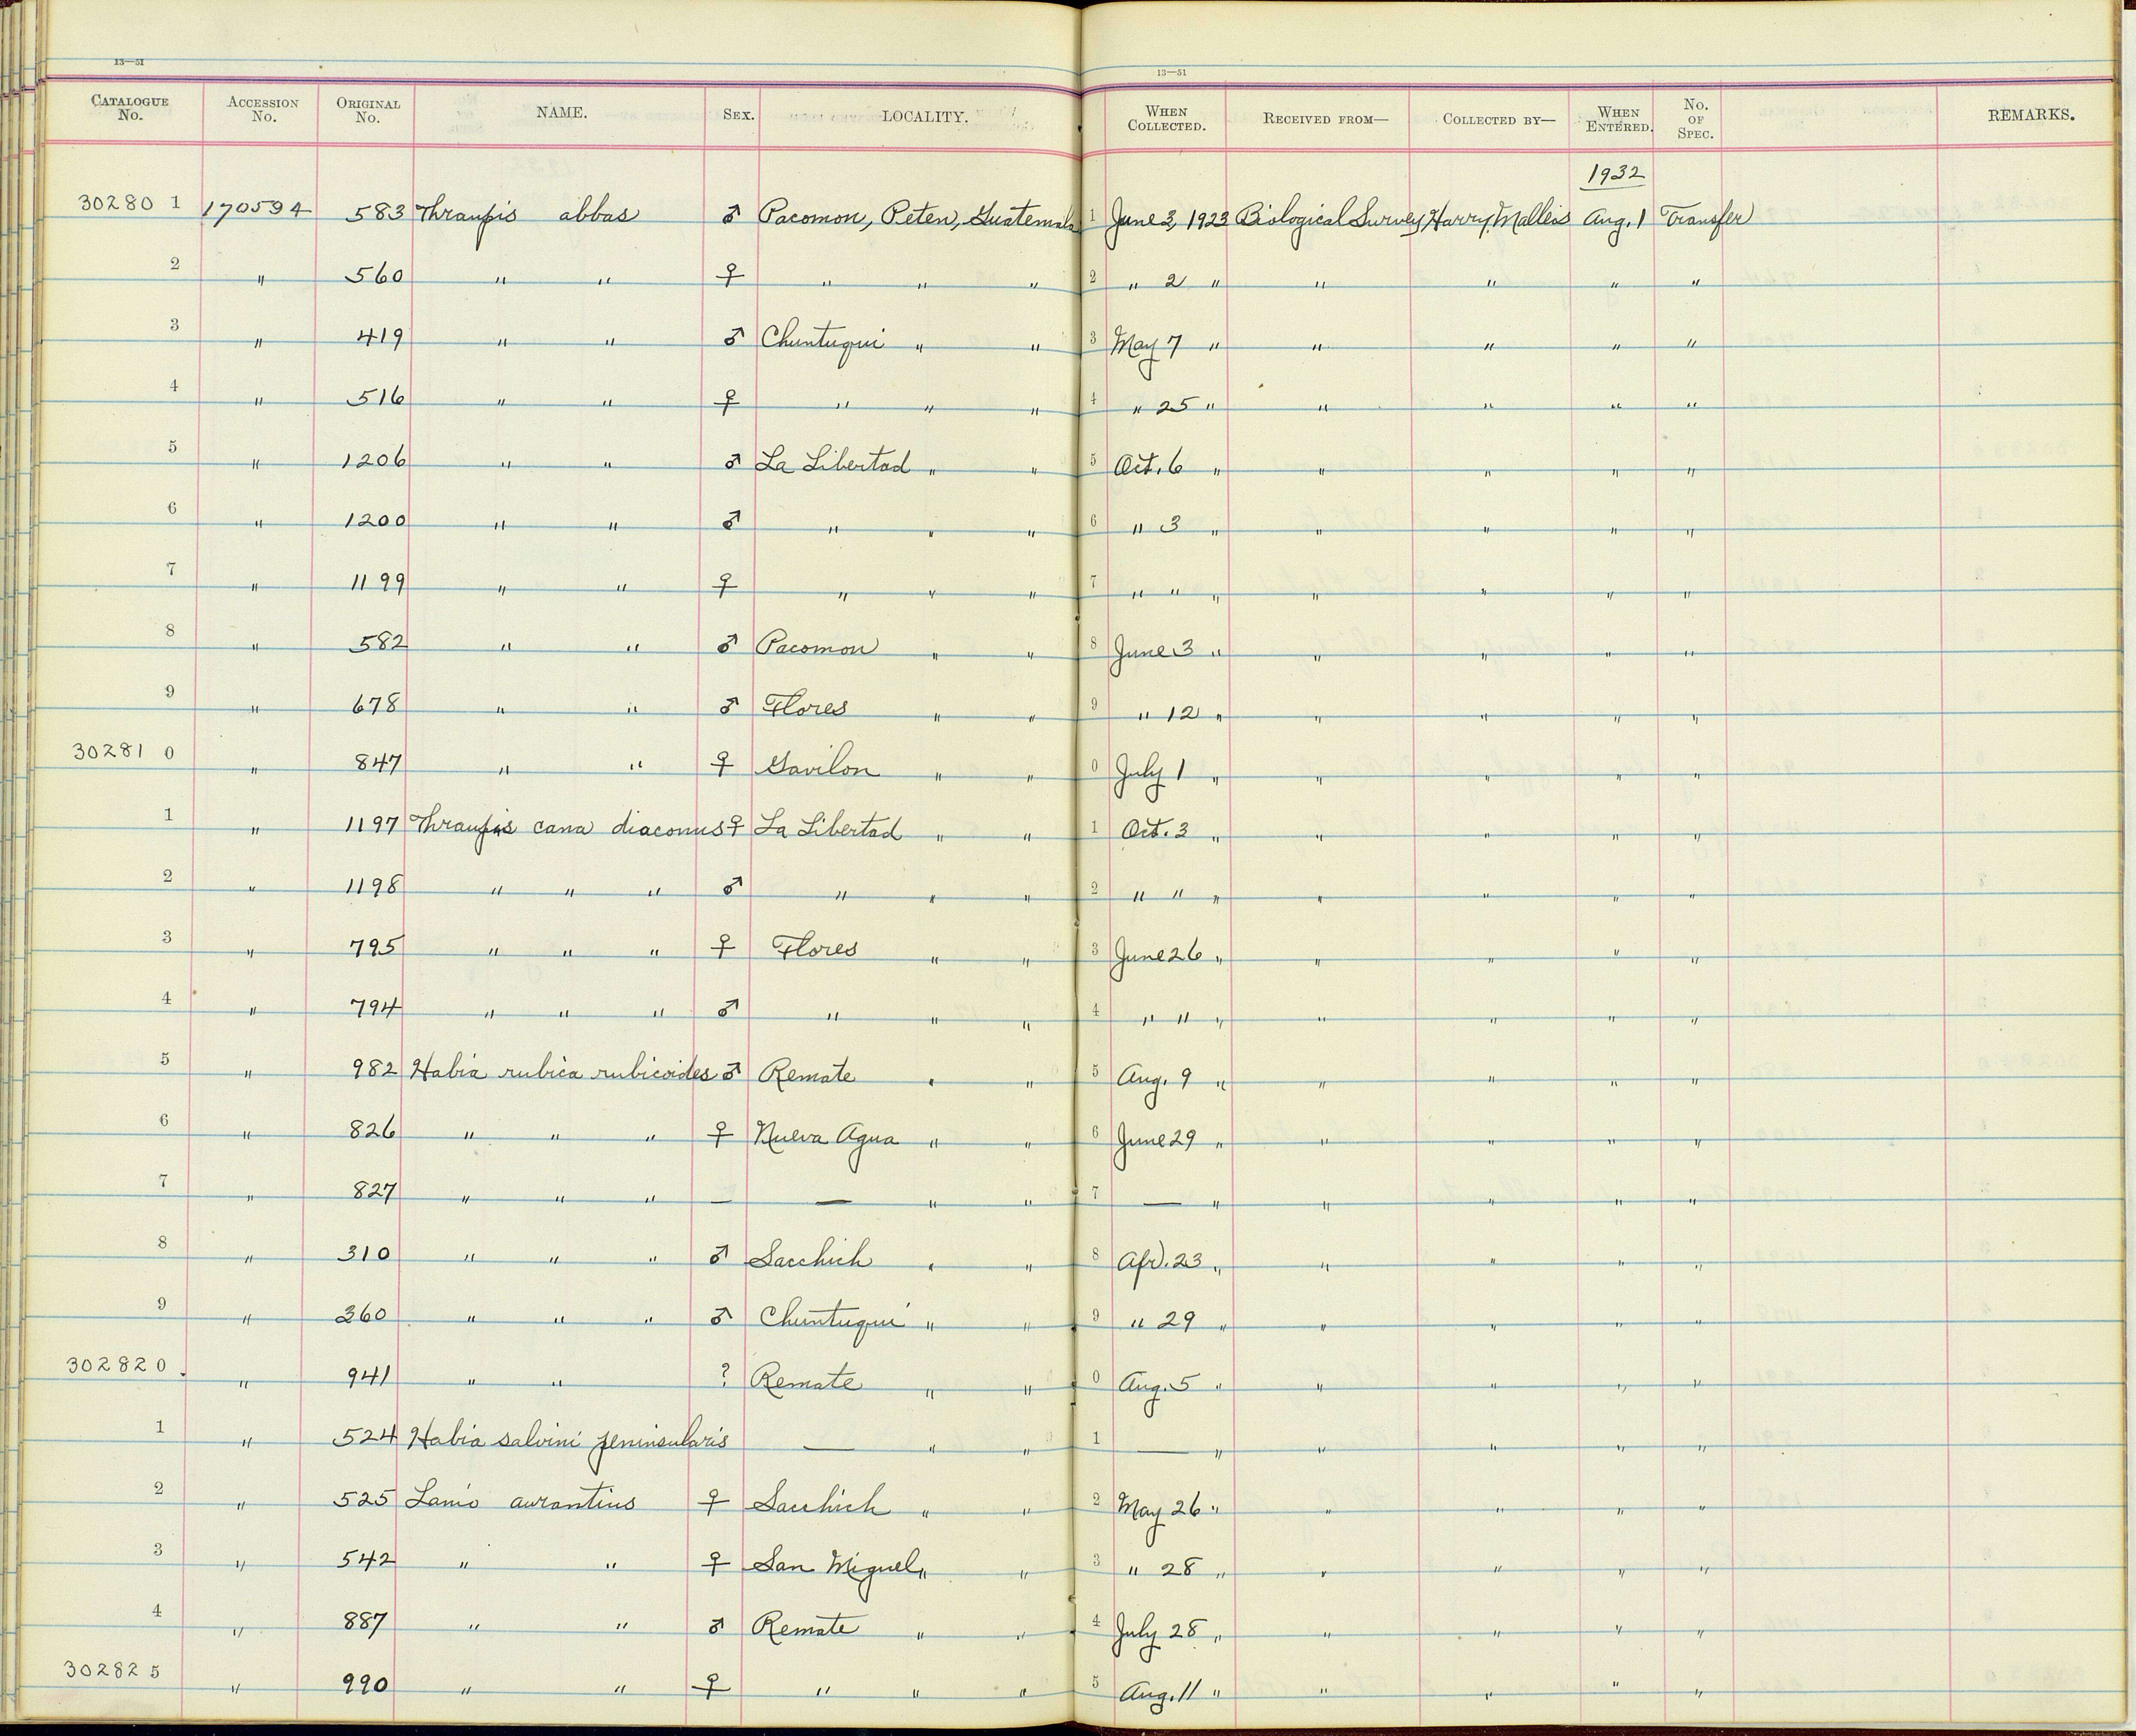 13—51 13—51
CATALOGUE No. ACCESSION No. ORIGINAL No. NAME. SEX. LOCALITY. WHEN COLLECTED. RECEIVED FROM— COLLECTED BY— WHEN ENTERED. No. OF SPEC. REMARKS.
1932
30280 1 170594 583 Thraupis abbas ♂ Pacomon, Peten, Guatemala 1 June 3, 1923 Biological Survey Harry Malleis Aug. 1 Transfer
2 " 560 " " ♀ " " " 2 " 2 " " " " "
3 " 419 " " ♂ Chuntuqui " " 3 May 7 " " " " "
4 " 516 " " ♀ " " " 4 " 25 " " " " "
5 " 1206 " " ♂ La Libertad " " 5 Oct. 6 " " " " "
6 " 1200 " " ♂ " " " 6 " 3 " " " " "
7 " 1199 " " ♀ " " " 7 " " " " " " "
8 " 582 " " ♂ Pacomon " " 8 June 3 " " " " "
9 " 678 " " ♂ Flores " " 9 " 12 " " " " "
30281 0 " 847 " " ♀ Gavilon " " 0 July 1 " " " " "
1 " 1197 Thraupis cana diaconus ♀ La Libertad " " 1 Oct. 3 " " " " "
2 " 1198 " " " ♂ " " " 2 " " " " " " "
3 " 795 " " " ♀ Flores " " 3 June 26 " " " " "
4 " 794 " " " ♂ " " " 4 " " " " " " "
5 " 982 Habia rubica rubicoides ♂ Remate " " 5 Aug. 9 " " " " "
6 " 826 " " " ♀ Nueva Agua " " 6 June 29 " " " " "
7 " 827 " " " — — " " 7 — " " " " "
8 " 310 " " " ♂ Sacchich " " 8 Apr. 23 " " " " "
9 " 360 " " " ♂ Chuntuqui " " 9 " 29 " " " " "
30282 0 " 941 " " ? Remate " " 0 Aug. 5 " " " " "
1 " 524 Habia salvini peninsularis — " " 1 — " " " " "
2 " 525 Lanio aurantius ♀ Sacchich " " 2 May 26 " " " " "
3 " 542 " " ♀ San Miguel " " 3 " 28 " " " " "
4 " 887 " " ♂ Remate " " 4 July 28 " " " " "
30282 5 " 990 " " ♀ " " " 5 Aug. 11 " " " " "